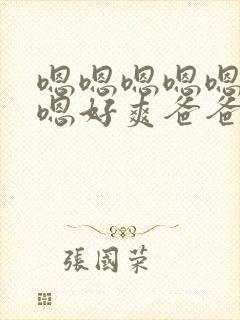 嗯嗯嗯嗯嗯
嗯好爽爸爸
張國荣